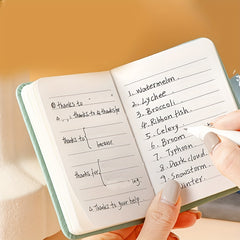 ① thanks to
a. ... thanks to & thanks for
thanks to
because
thanks for
ing
a. Thanks to your help.
1. Watermelon.
2. Lychee.
3. Broccoli
4. Ribbon fish
5. Celery
6. Broom
7. Typhoon
8. Dark cloud.
9. Snowstorm
Winter.